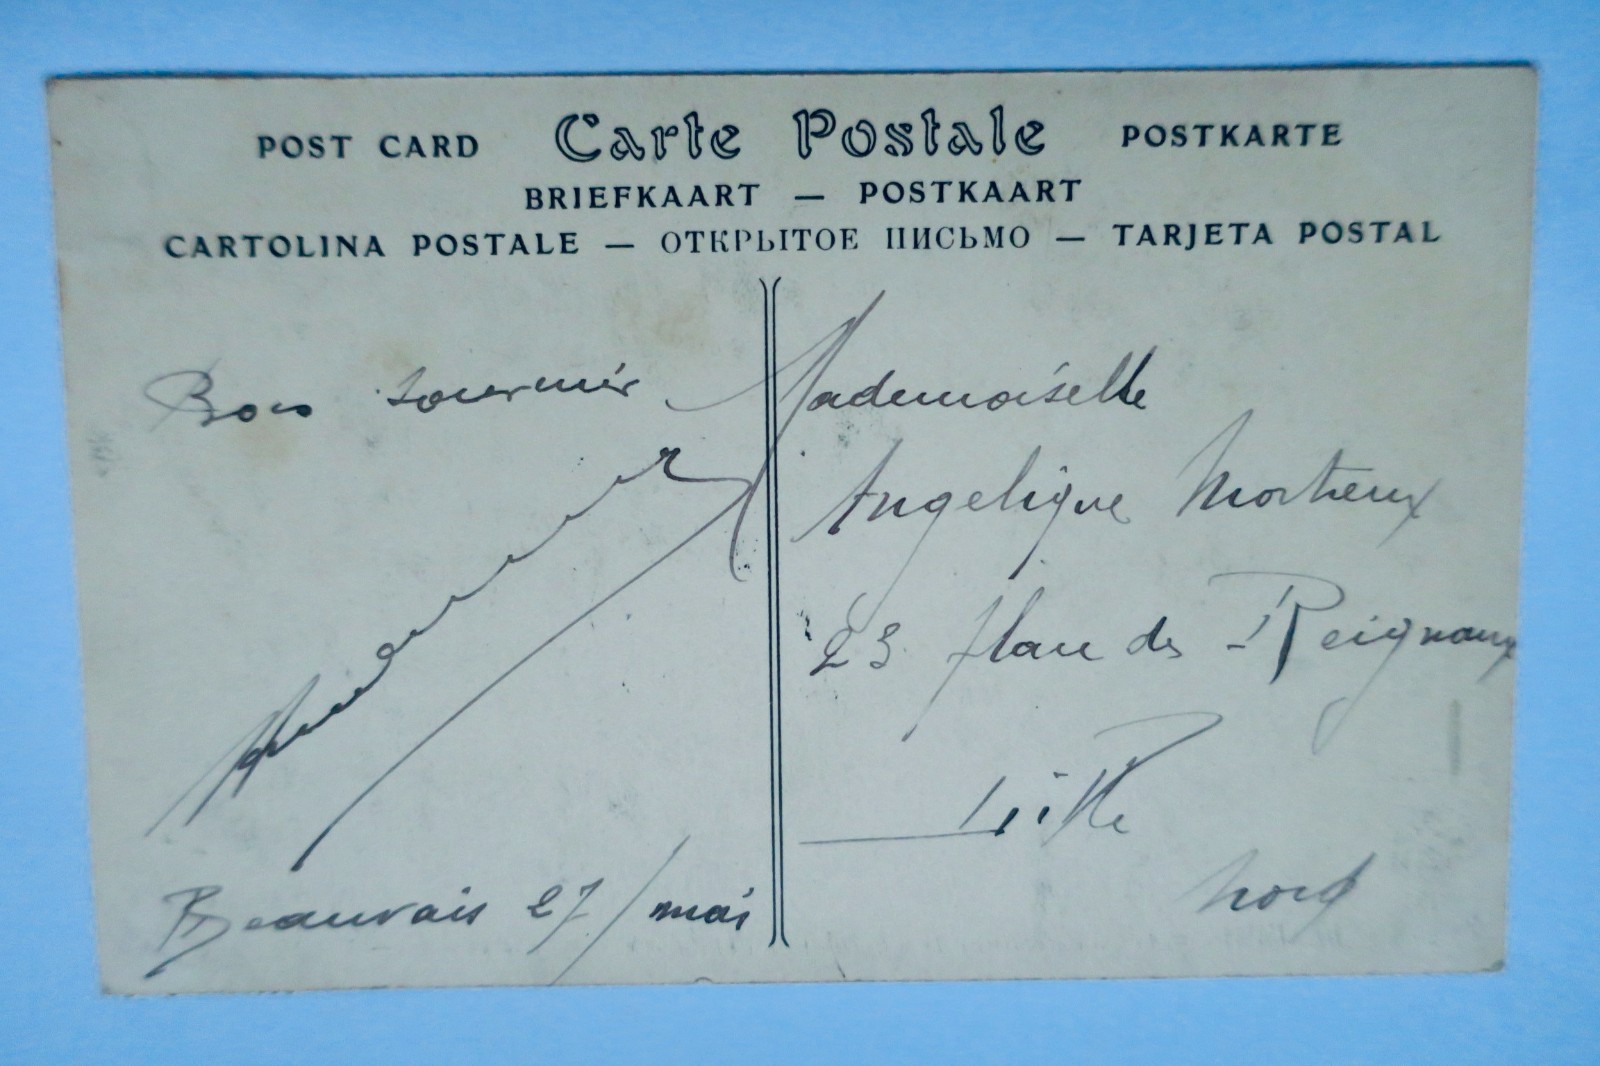 POST CARD Carte Postale POSTKARTE
BRIEFKAART — POSTKAART
CARTOLINA POSTALE — ОТКРЫТОЕ ПИСЬМО — TARJETA POSTAL
Bon souvenir
Beauvais 27/mai
Mademoiselle
Angelique Mortreux
23 Place des Reignaux
Lille
Nord